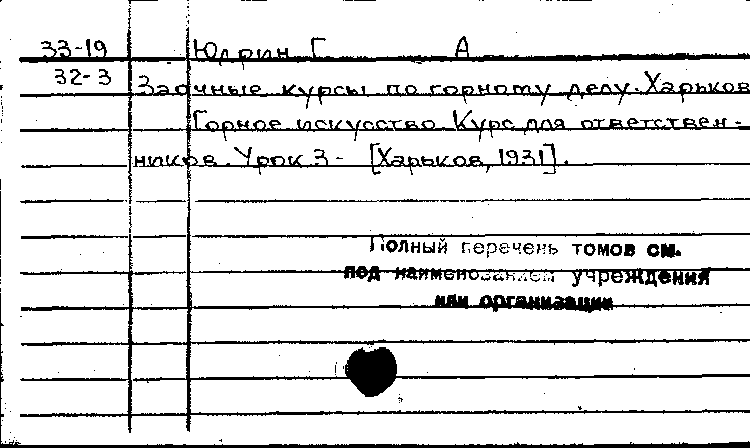 33-19 Юдрин Г А
32-3 Заочные курсы по горному делу. Харьков
Горное искусство Курс для ответствен-
ников. Урок 3- [Харьков, 1931].
Полный перечень томов см.
под наименованием учреждения
или организации